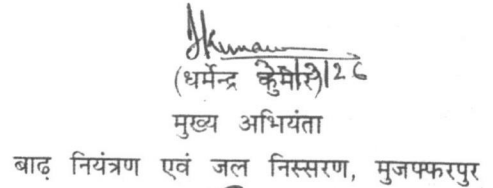 (धर्मेन्द्र कुमार)
मुख्य अभियंता
बाढ़ नियंत्रण एवं जल निस्सरण, मुजफ्फरपुर